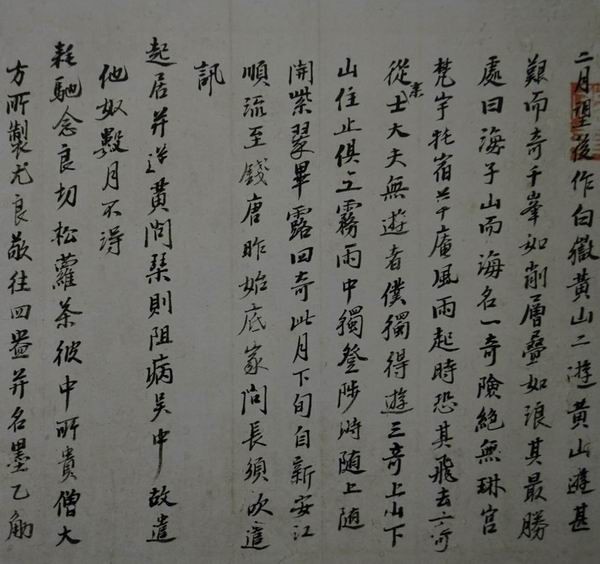 二月望後作白嶽黃山二遊黃山遊甚
艱而奇千峯如削層疊如浪其最勝
處曰海子山而海名一奇險絕無琳宮
梵宇托宿茅庵風雨起時恐其飛去二奇
從來士大夫無遊者僕獨得遊三奇上山下
山住止俱在霧雨中獨登陟時随上随
開紫翠畢露四奇此月下旬自新安江
順流至錢唐昨始底家問長須欲遣
訊
起居并送黃問琹則阻病吳中故遣
他奴數月不得
耗馳念良切松蘿茶彼中所貴僧大
方所製尤良敬往四并名墨乙觔